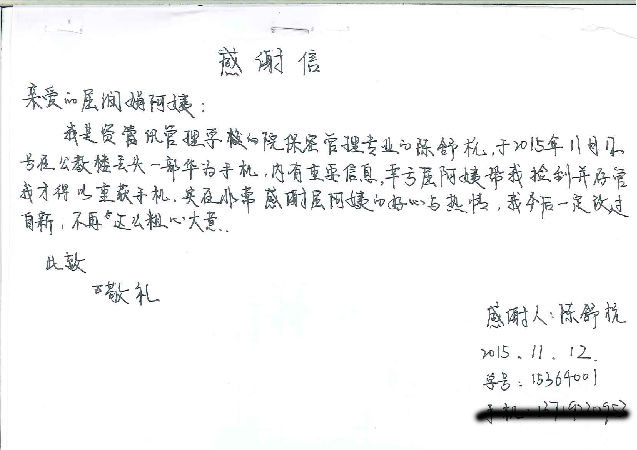 感谢信
亲爱的屈润娟阿姨：
我是资管院管理学校的院保密管理专业的陈舒杭，于2015年11月
号在公教楼丢失一部华为手机，内有重要信息，幸亏屈阿姨帮我捡到并存管
我才得以重获手机，实在非常感谢屈阿姨的好心与热情，我今后一定改过
自新，不再这么粗心大意.
此致
敬礼
感谢人：陈舒杭
2015.11.12.
学号：15364001
手机：